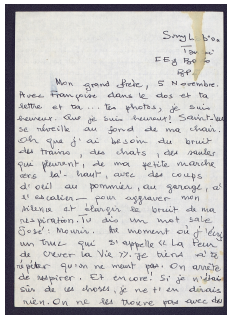 Mon grand frère, 5 Novembre.
Avec Françoise dans le dos et ta
lettre et ta ... tes photos, je suis
heureux. Que je suis heureux!
se réveille au fond de ma chair.
Oh que j'ai besoin du bruit
des trains, des chats, des saules
qui pleurent, de ma petite marche
vers là-haut, avec des coups
d'oeil au pommier, au garage, à
l'escalier — pour aggraver mon
silence et élargir le bruit de ma
respiration. Tu dis un mot sale
José: Mourir. Au moment où j'
un truc qui s'appelle "La Peur
de crever la Vie". Je tiens à te
répéter qu'on ne meurt pas. On arrête
de respirer. Et encore! Si je n'étais
sûr de ces choses, je ne t'en dirais
rien. On ne les trouve pas avec des